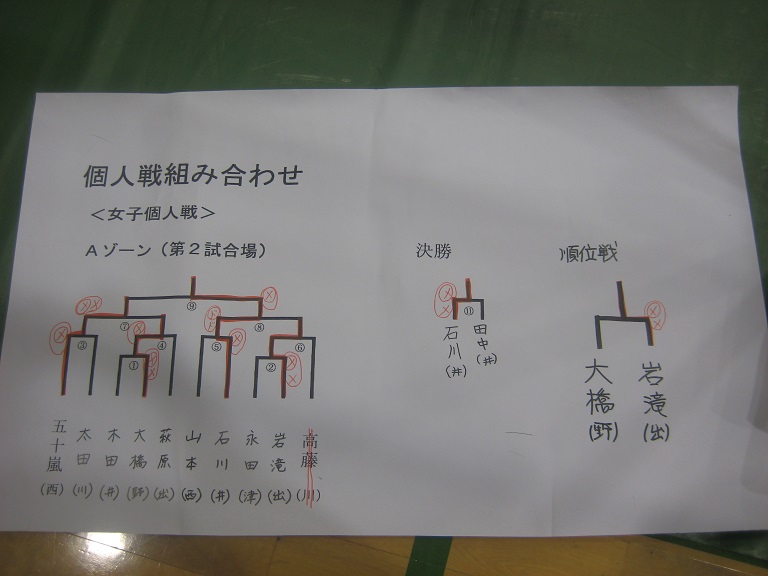 個人戦組み合わせ
＜女子個人戦＞
Aゾーン（第２試合場）
決勝
順位戦
⑨
⑦
⑧
③
④
⑤
⑥
①
②
⑪
五十嵐(西)
太田(川)
木田(井)
大橋(野)
萩原(出)
山本(西)
石川(井)
永田(津)
岩滝(出)
高藤(川)
石川(井)
田中(井)
大橋(野)
岩滝(出)